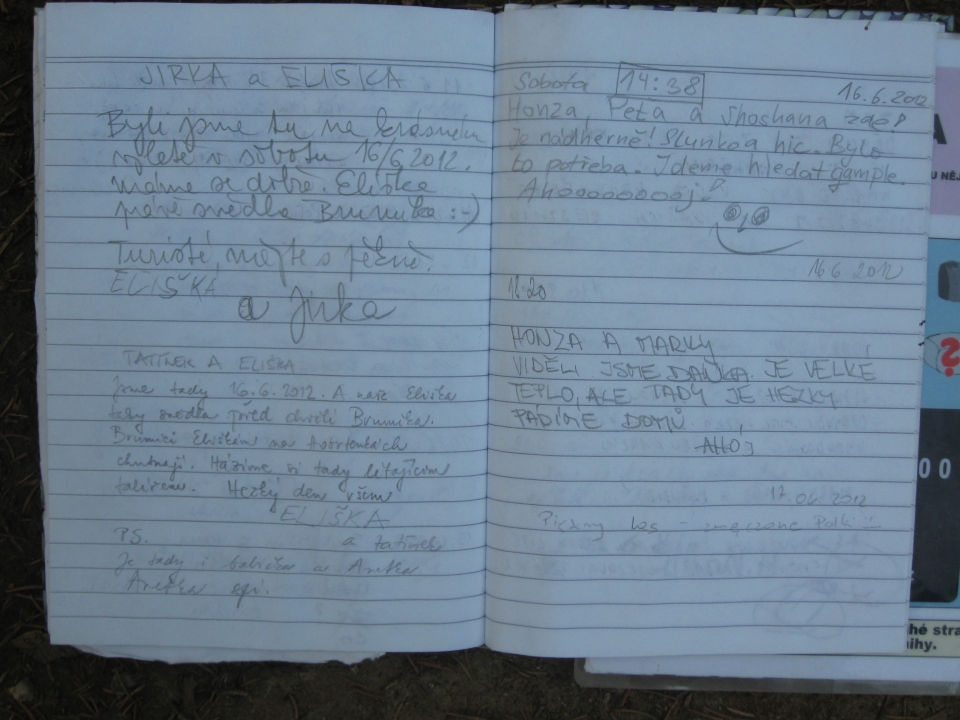 JIRKA a ELIŠKA
Byli jsme tu na krásném
výletě v sobotu 16/6 2012.
máme se dobře. Eliška
právě snědla Brumíka :-)
Turisté, mějte se pěkně.
ELIŠKA
a Jirka
TATÍNEK A ELIŠKA
Jsme tady 16.6.2012. A naše Eliška
taky snědla před chvílí Brumíka.
Brumíci Eliškám na
chutnají. Házíme si tady létajícím
talířem. Hezký den všem
ELIŠKA
a tatínek
PS.
Je tady i babička a Anetka.
Anetka spí.
Sobota 14:38 16.6.2012
Honza, Péťa a Shoshana zde!
Je nádherně! Slunko a hic. Bylo
to potřeba. Jdeme hledat gample.
Ahooooooooj!
16.6 2012
16:20
HONZA A MARKY
VIDĚLI JSME DAŇKA. JE VELKÉ
TEPLO, ALE TADY JE HEZKY
PÁDÍME DOMŮ
AHOJ
17.06 2012
Piękny las - zmęczone Polki
A
U NĚJ
?
00
hé stra
ihy.